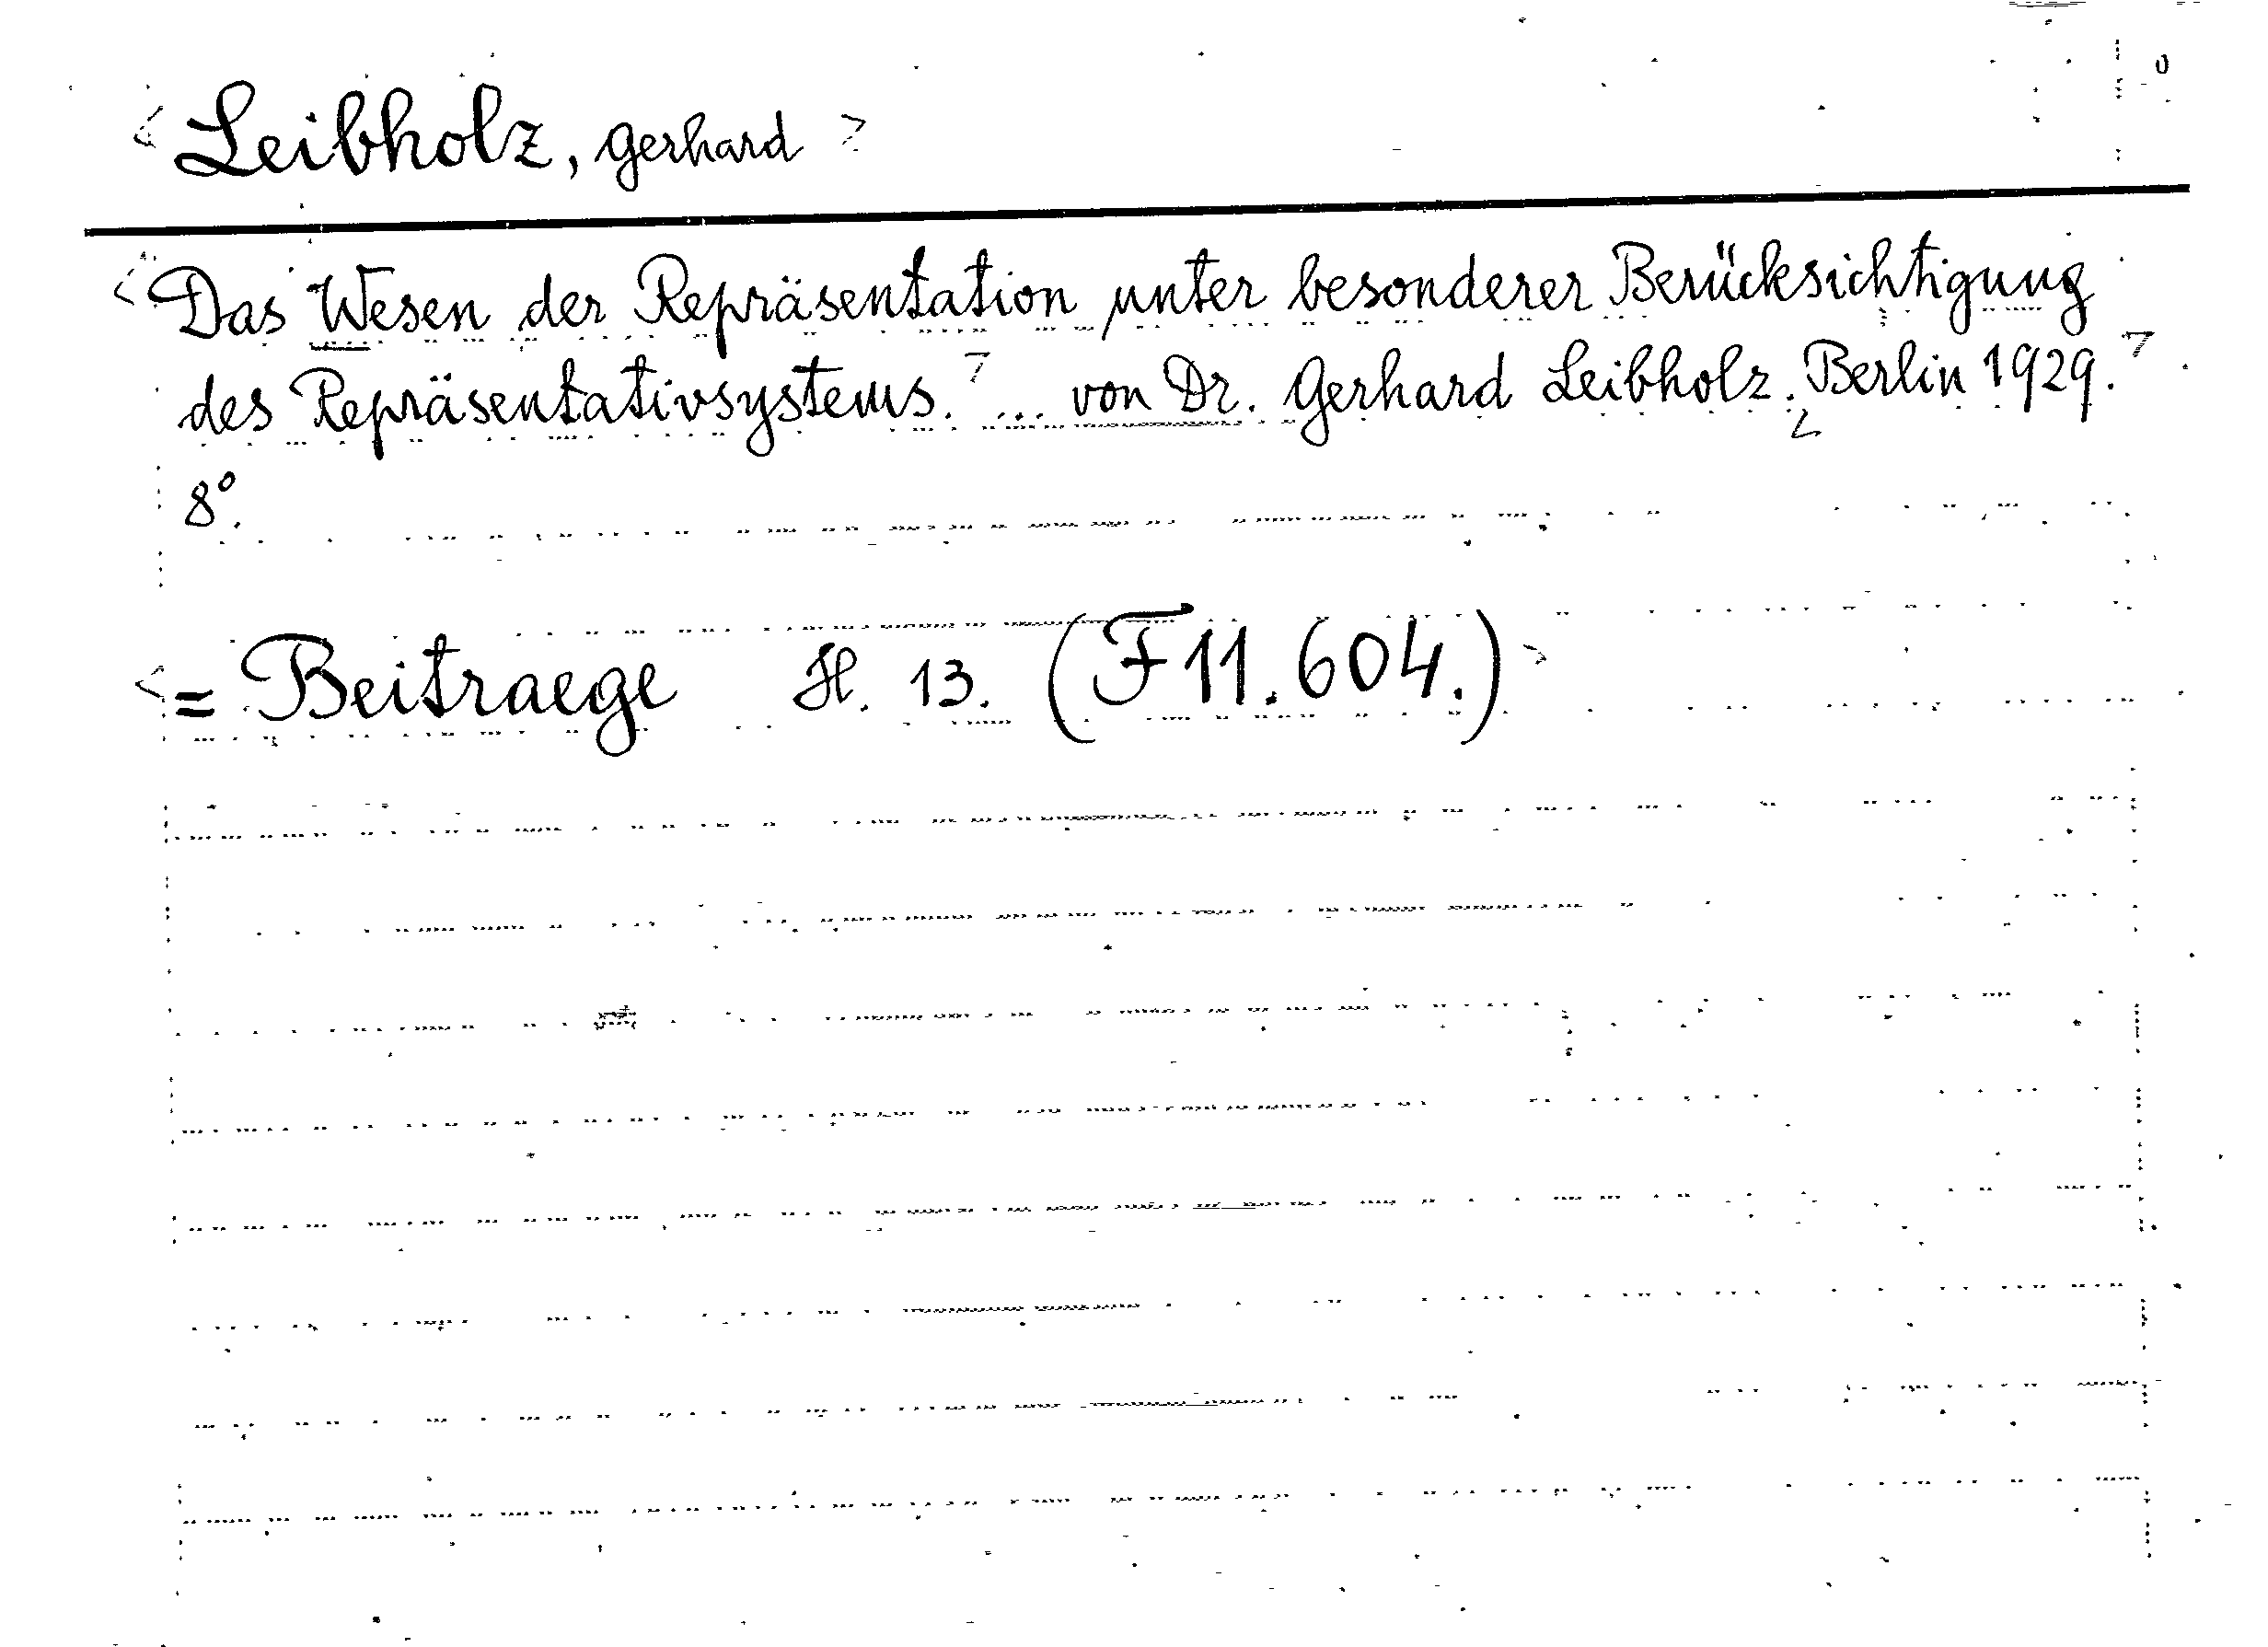 < Leibholz, Gerhard >
< Das Wesen der Repräsentation unter besonderer Berücksichtigung
des Repräsentativsystems. > ... von Dr. Gerhard Leibholz. < Berlin 1929. >
8°.
< = Beitraege H. 13. (F 11.604.) >